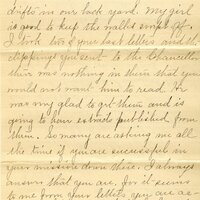 drifts in our back yard. My girl
is good to keep the walks swept off.
I took two of your last letters and the
clippings you sent to the Chancellor
there was nothing in them that you
would not want him to read. He
was very glad to get them and is
going to have extracts published from
them. So many are asking me all
the time if you are successful in
your mission down there. I always
answer that you are, for it seems
to me from your letters you are as-